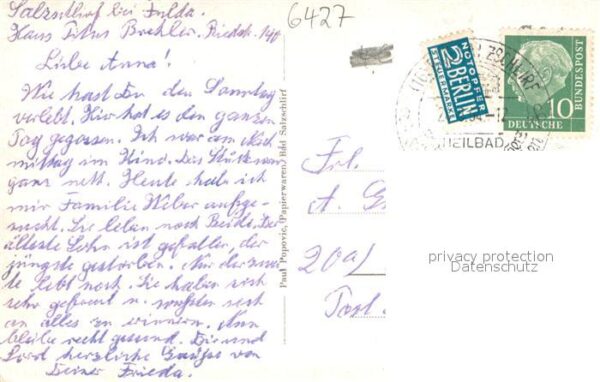 Salzschlirf bei Fulda.
Haus Titus Brehler. Riedstr.
Liebe Anna!
Wie hast Du den Sonntag
verlebt. Hier hat es den ganzen
Tag gegossen. Ich war am Nach
mittag im Kino. Das Stück war
ganz nett. Heute hab ich
mir Familie Weber aufge-
sucht. Sie leben noch Beide. Der
älteste Sohn ist gefallen, der
jüngste gestorben. Nur der zweite
lebt noch. Sie haben sich
sehr gefreut u. wußten sich
an alles zu erinnern. Nun
bleibe recht gesund. Dir und
herzliche Grüße von
Deiner Frieda.
6427
Paul Popovic, Papierwaren, Bad Salzschlirf
NOTOPFER
2 BERLIN
STEUERMARKE
10
DEUTSCHE
BUNDESPOST
HEILBAD
Frl.
A. G
20a/
Post.
privacy protection
Datenschutz